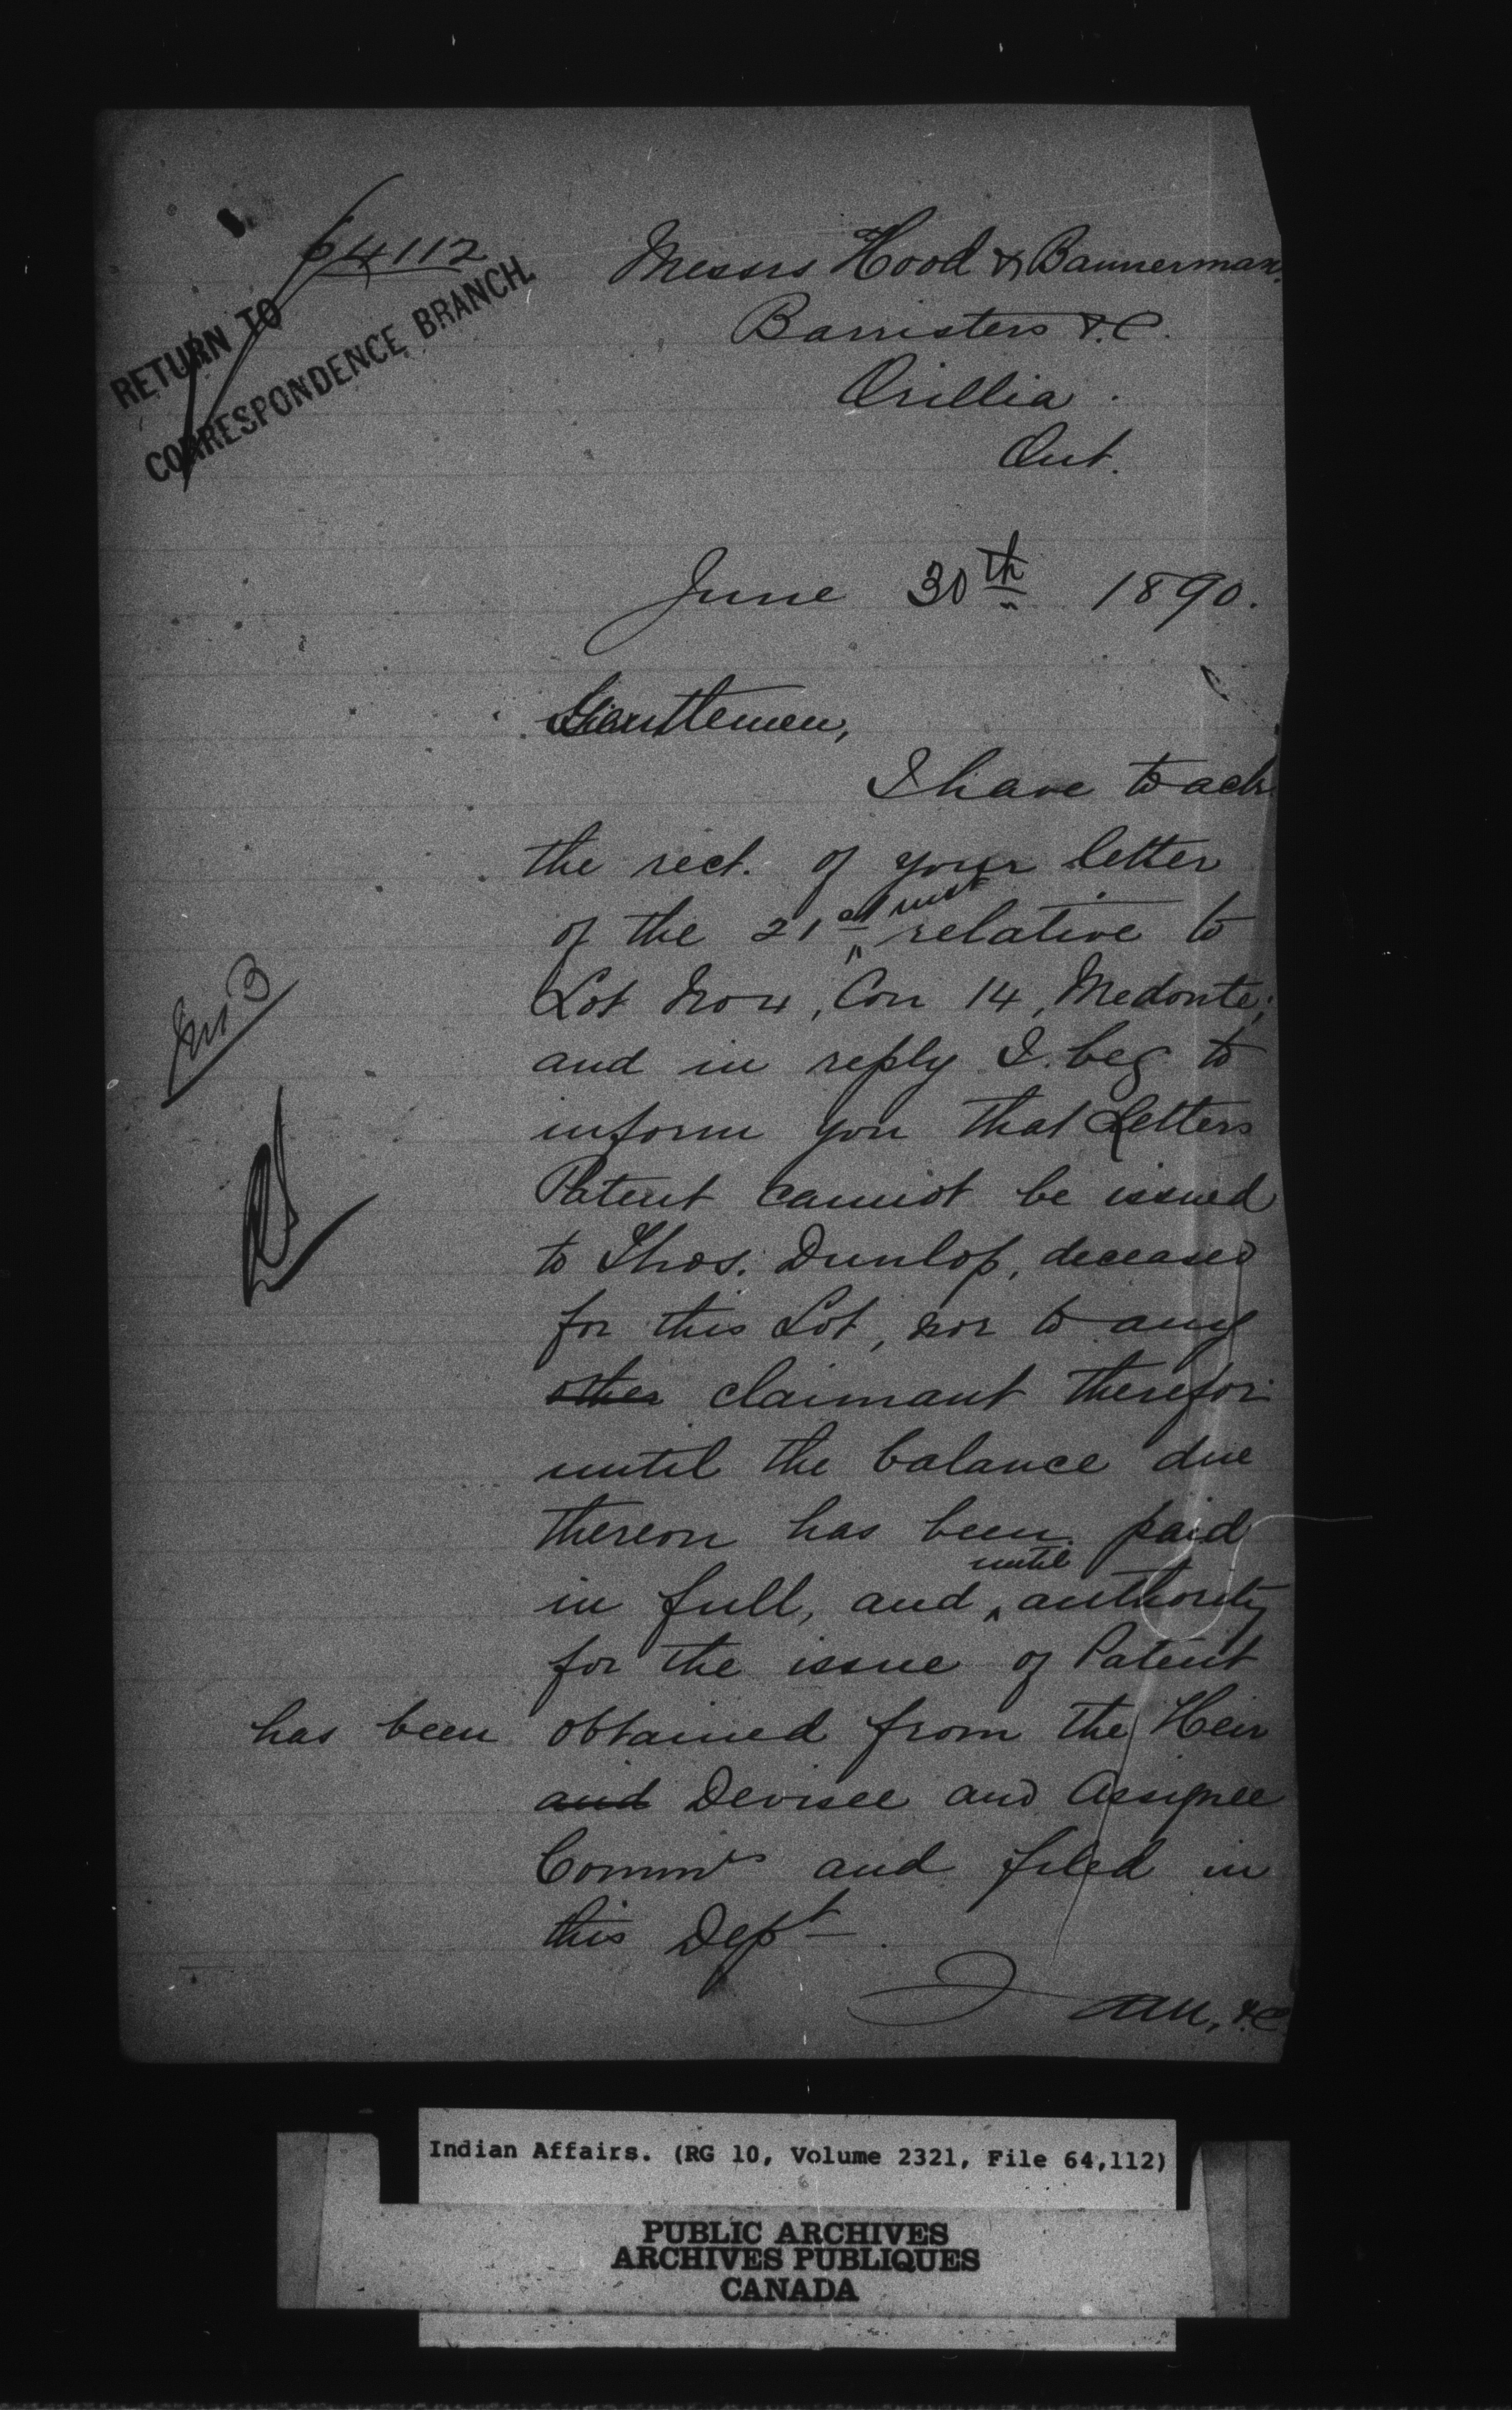 64112
RETURN TO
CORRESPONDENCE BRANCH
Messrs Hood & Bannerman.
Barristers &C.
Orillia.
Ont.
June 30th 1890.
Gentlemen,
I have to ack.
the rect. of your letter
of the 21st inst relative to
Lot No 4, Con 14, Medonte;
and in reply I beg to
inform you that Letters
Patent cannot be issued
to Thos. Dunlop, deceased
for this Lot, nor to any
other claimant therefor
until the balance due
thereon has been paid
in full, and until authority
for the issue of Patent
has been obtained from the Heir
and Devisee and Assignee
Commrs and filed in
this Dept.
I am, &C
Indian Affairs. (RG 10, Volume 2321, File 64,112)
PUBLIC ARCHIVES
ARCHIVES PUBLIQUES
CANADA